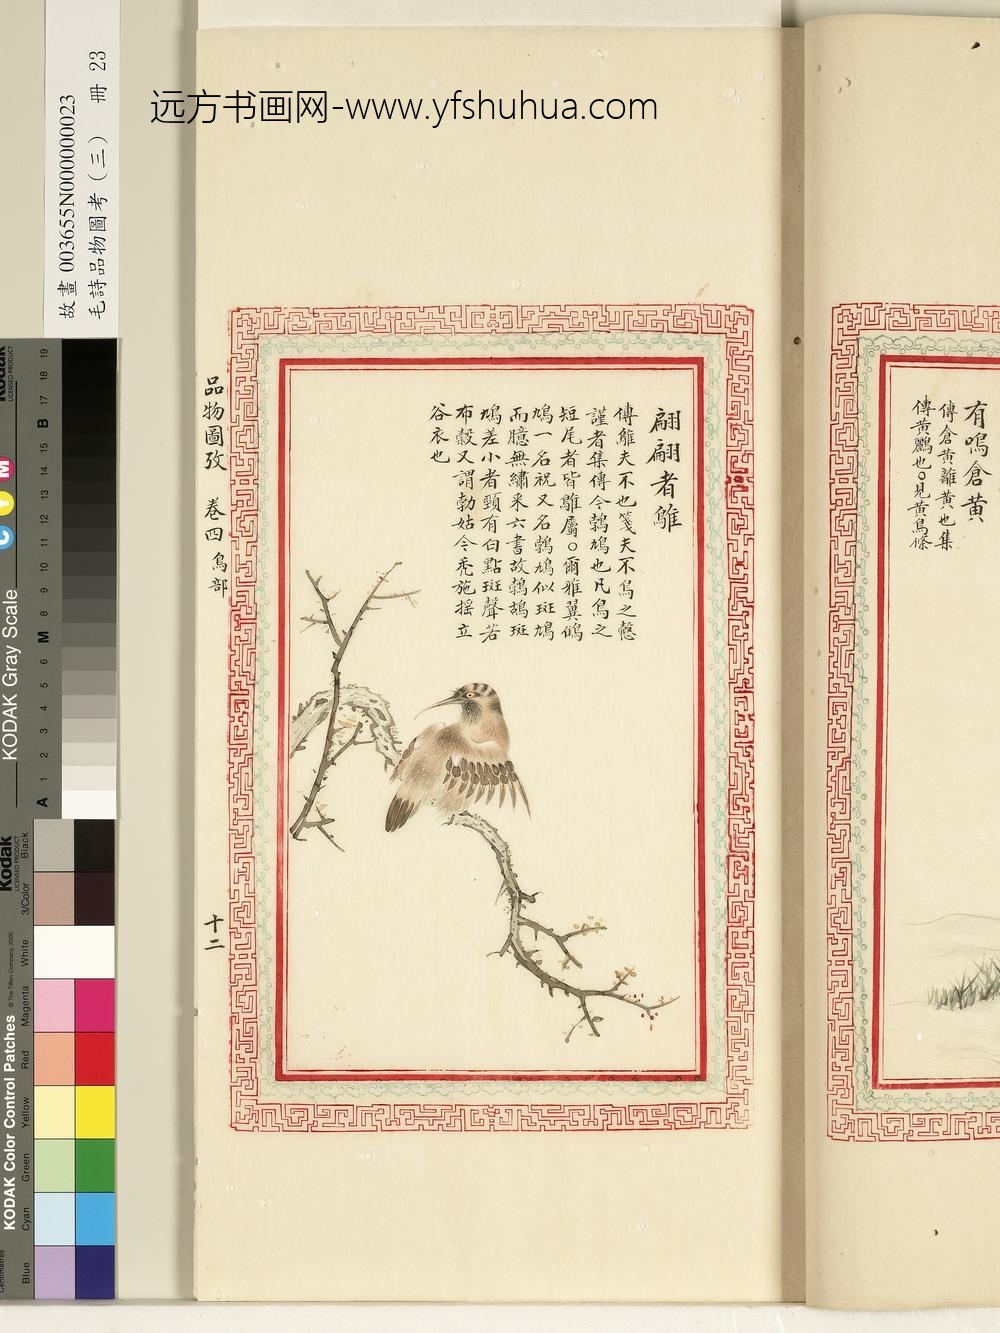 远方书画网-www.yfshuhua.com
故畫 003655N000000023
毛詩品物圖考（三） 冊 23
有鳴倉黄
傳倉黄離黄也集
傳黄鸝也○見黄鳥條
翩翩者鵻
傳鵻夫不也箋夫不鳥之慤
謹者集傳今鵓鳩也凡鳥之
短尾者皆鵻屬○爾雅翼鵻
鳩一名祝又名鵓鳩似斑鳩
而臆無繡采六書故鵓鴣斑
鳩差小者頸有白點斑聲若
布穀又謂勃姑今禿施摇立
谷衣也
品物圖攷 卷四 鳥部
十二
KODAK Gray Scale
Kodak
LICENSED PRODUCT
A 1 2 3 4 5 6 M 8 9 10 11 12 13 14 15 B 17 18 19
C Y M
KODAK Color Control Patches
© The Tiffen Company, 2000
Kodak
LICENSED PRODUCT
Centimetres
Blue Cyan Green Yellow Red Magenta White 3/Color Black